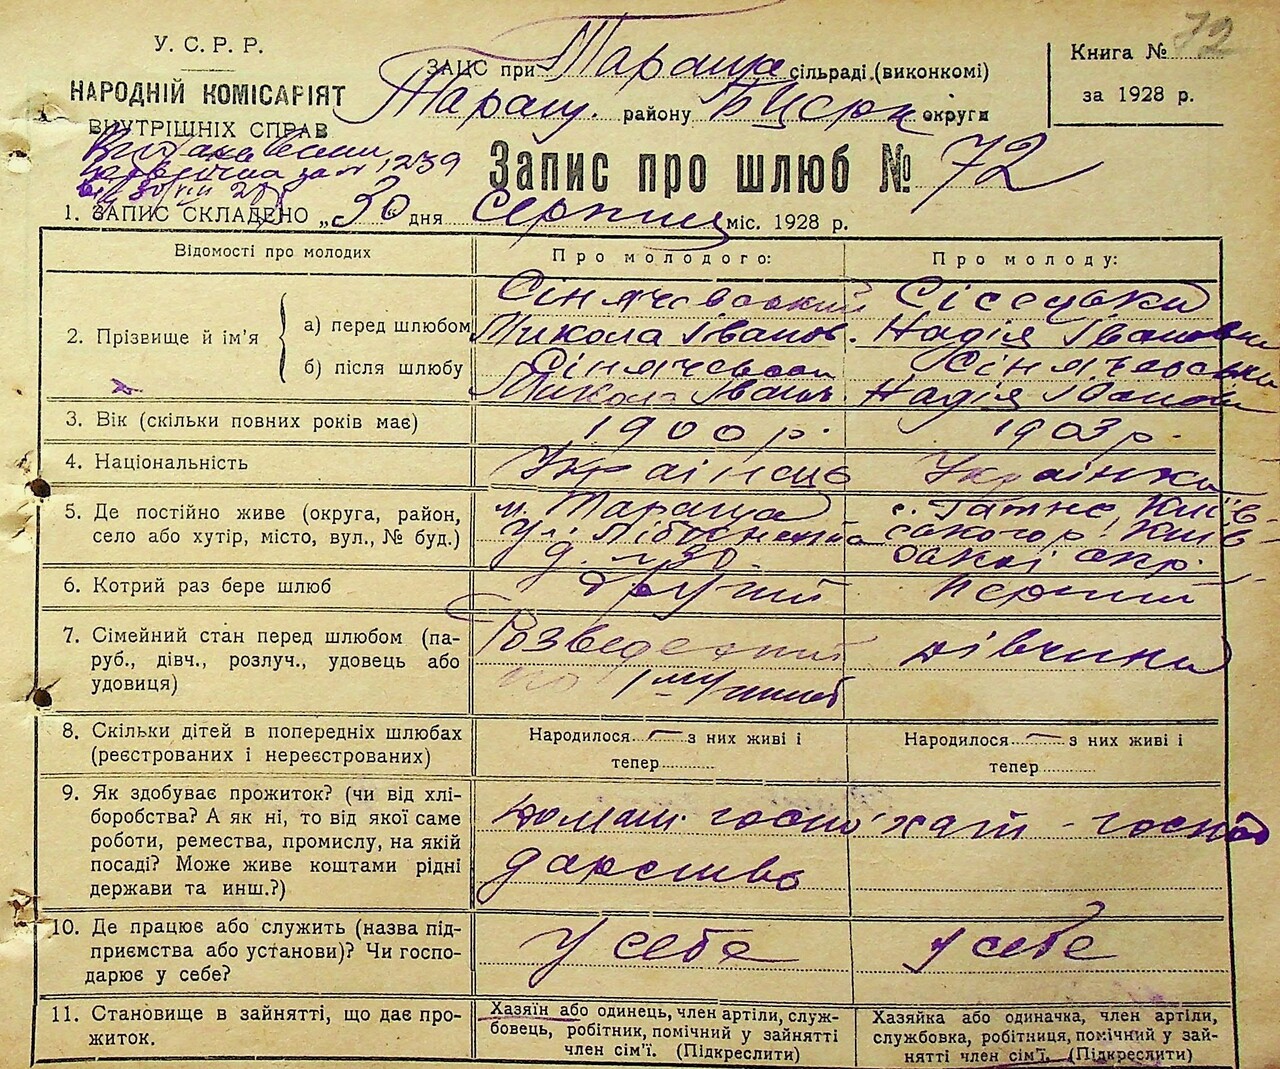 72
У. С. Р. Р.
НАРОДНІЙ КОМІСАРІЯТ
ВНУТРІШНІХ СПРАВ
ЗАЦС при Тараща сільраді (виконкомі)
Таращ. району БЦерк округи
Книга №
за 1928 р.
1239
Запис про шлюб № 72
1. ЗАПИС СКЛАДЕНО „ 30 дня Серпня міс. 1928 р.
Відомості про молодих
Про молодого:
Про молоду:
2. Прізвище й ім'я
а) перед шлюбом
Сінячевський
Микола Іванов.
Надія Івановна
б) після шлюбу
Сінячевськ
Микола Іванов.
Сінячевська
Надія Іванов
3. Вік (скільки повних років має)
1900 р.
1903 р.
4. Національність
Українець
Українка
5. Де постійно живе (округа, район,
село або хутір, місто, вул., № буд.)
м. Тараща
ул.
д. №30.
с. Гатне, Київ-
ського р. Київ-
ської окр.
6. Котрий раз бере шлюб
другий
перший
7. Сімейний стан перед шлюбом (па-
руб., дівч., розлуч., удовець або
удовиця)
Розведений
по 1му шлюб
дівчина
8. Скільки дітей в попередніх шлюбах
(реєстрованих і нереєстрованих)
Народилося — з них живі і
тепер
Народилося — з них живі і
тепер
9. Як здобуває прожиток? (чи від хлі-
боробства? А як ні, то від якої саме
роботи, ремества, промислу, на якій
посаді? Може живе коштами рідні
держави та инш.?)
домаш. госпо
дарство
хатн - господ
10. Де працює або служить (назва під-
приємства або установи)? Чи госпо-
дарює у себе?
у себе
у себе
11. Становище в зайнятті, що дає про-
житок.
Хазяїн або одинець, член артіли, служ-
бовець, робітник, помічний у зайнятті
член сім'ї. (Підкреслити)
Хазяйка або одиначка, член артіли,
службовка, робітниця, помічна у зай-
нятті член сім'ї. (Підкреслити)